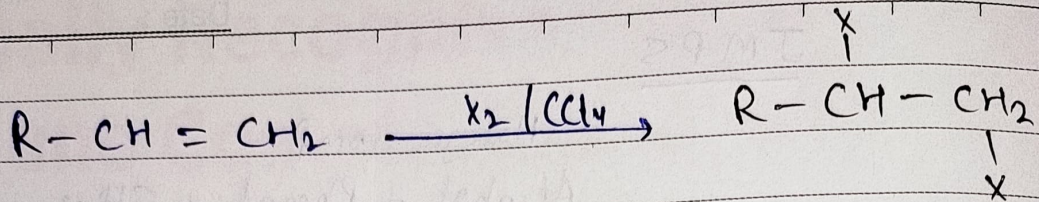 X
R - CH = CH₂ X₂ / CCl₄ R - CH - CH₂
X